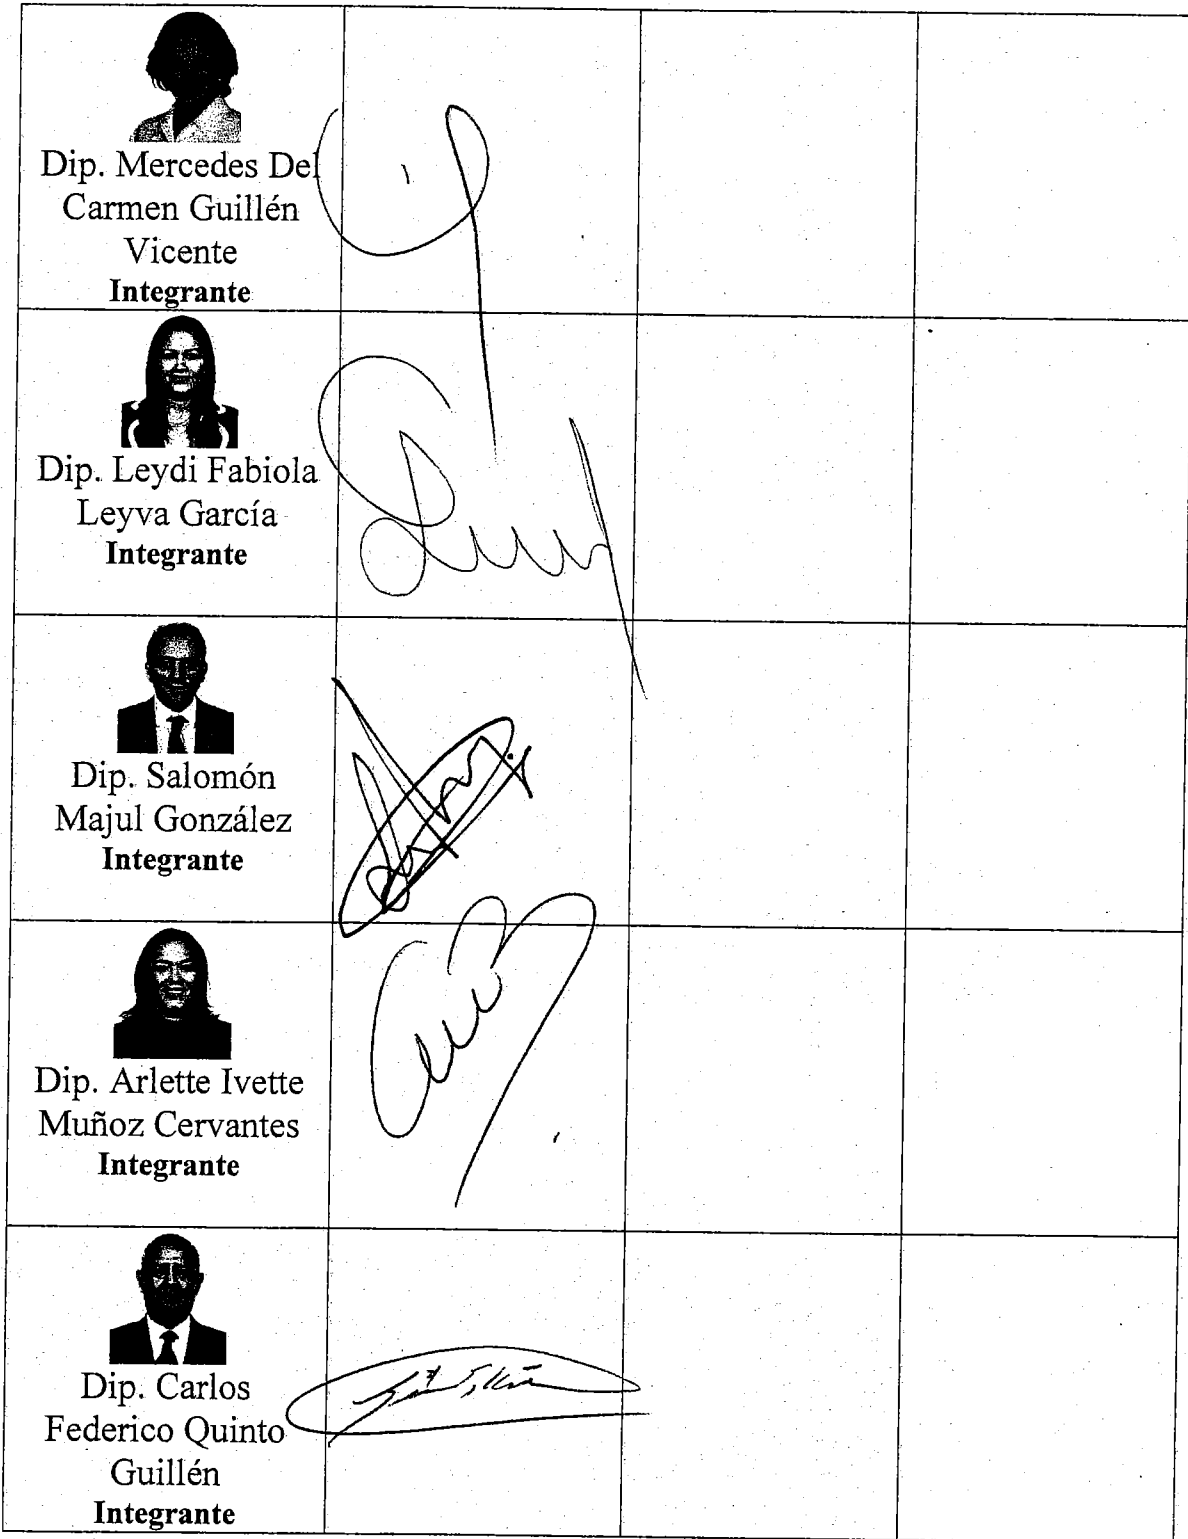 Dip. Mercedes Del
Carmen Guillén
Vicente
Integrante
Dip. Leydi Fabiola
Leyva García
Integrante
Dip. Salomón
Majul González
Integrante
Dip. Arlette Ivette
Muñoz Cervantes
Integrante
Dip. Carlos
Federico Quinto
Guillén
Integrante